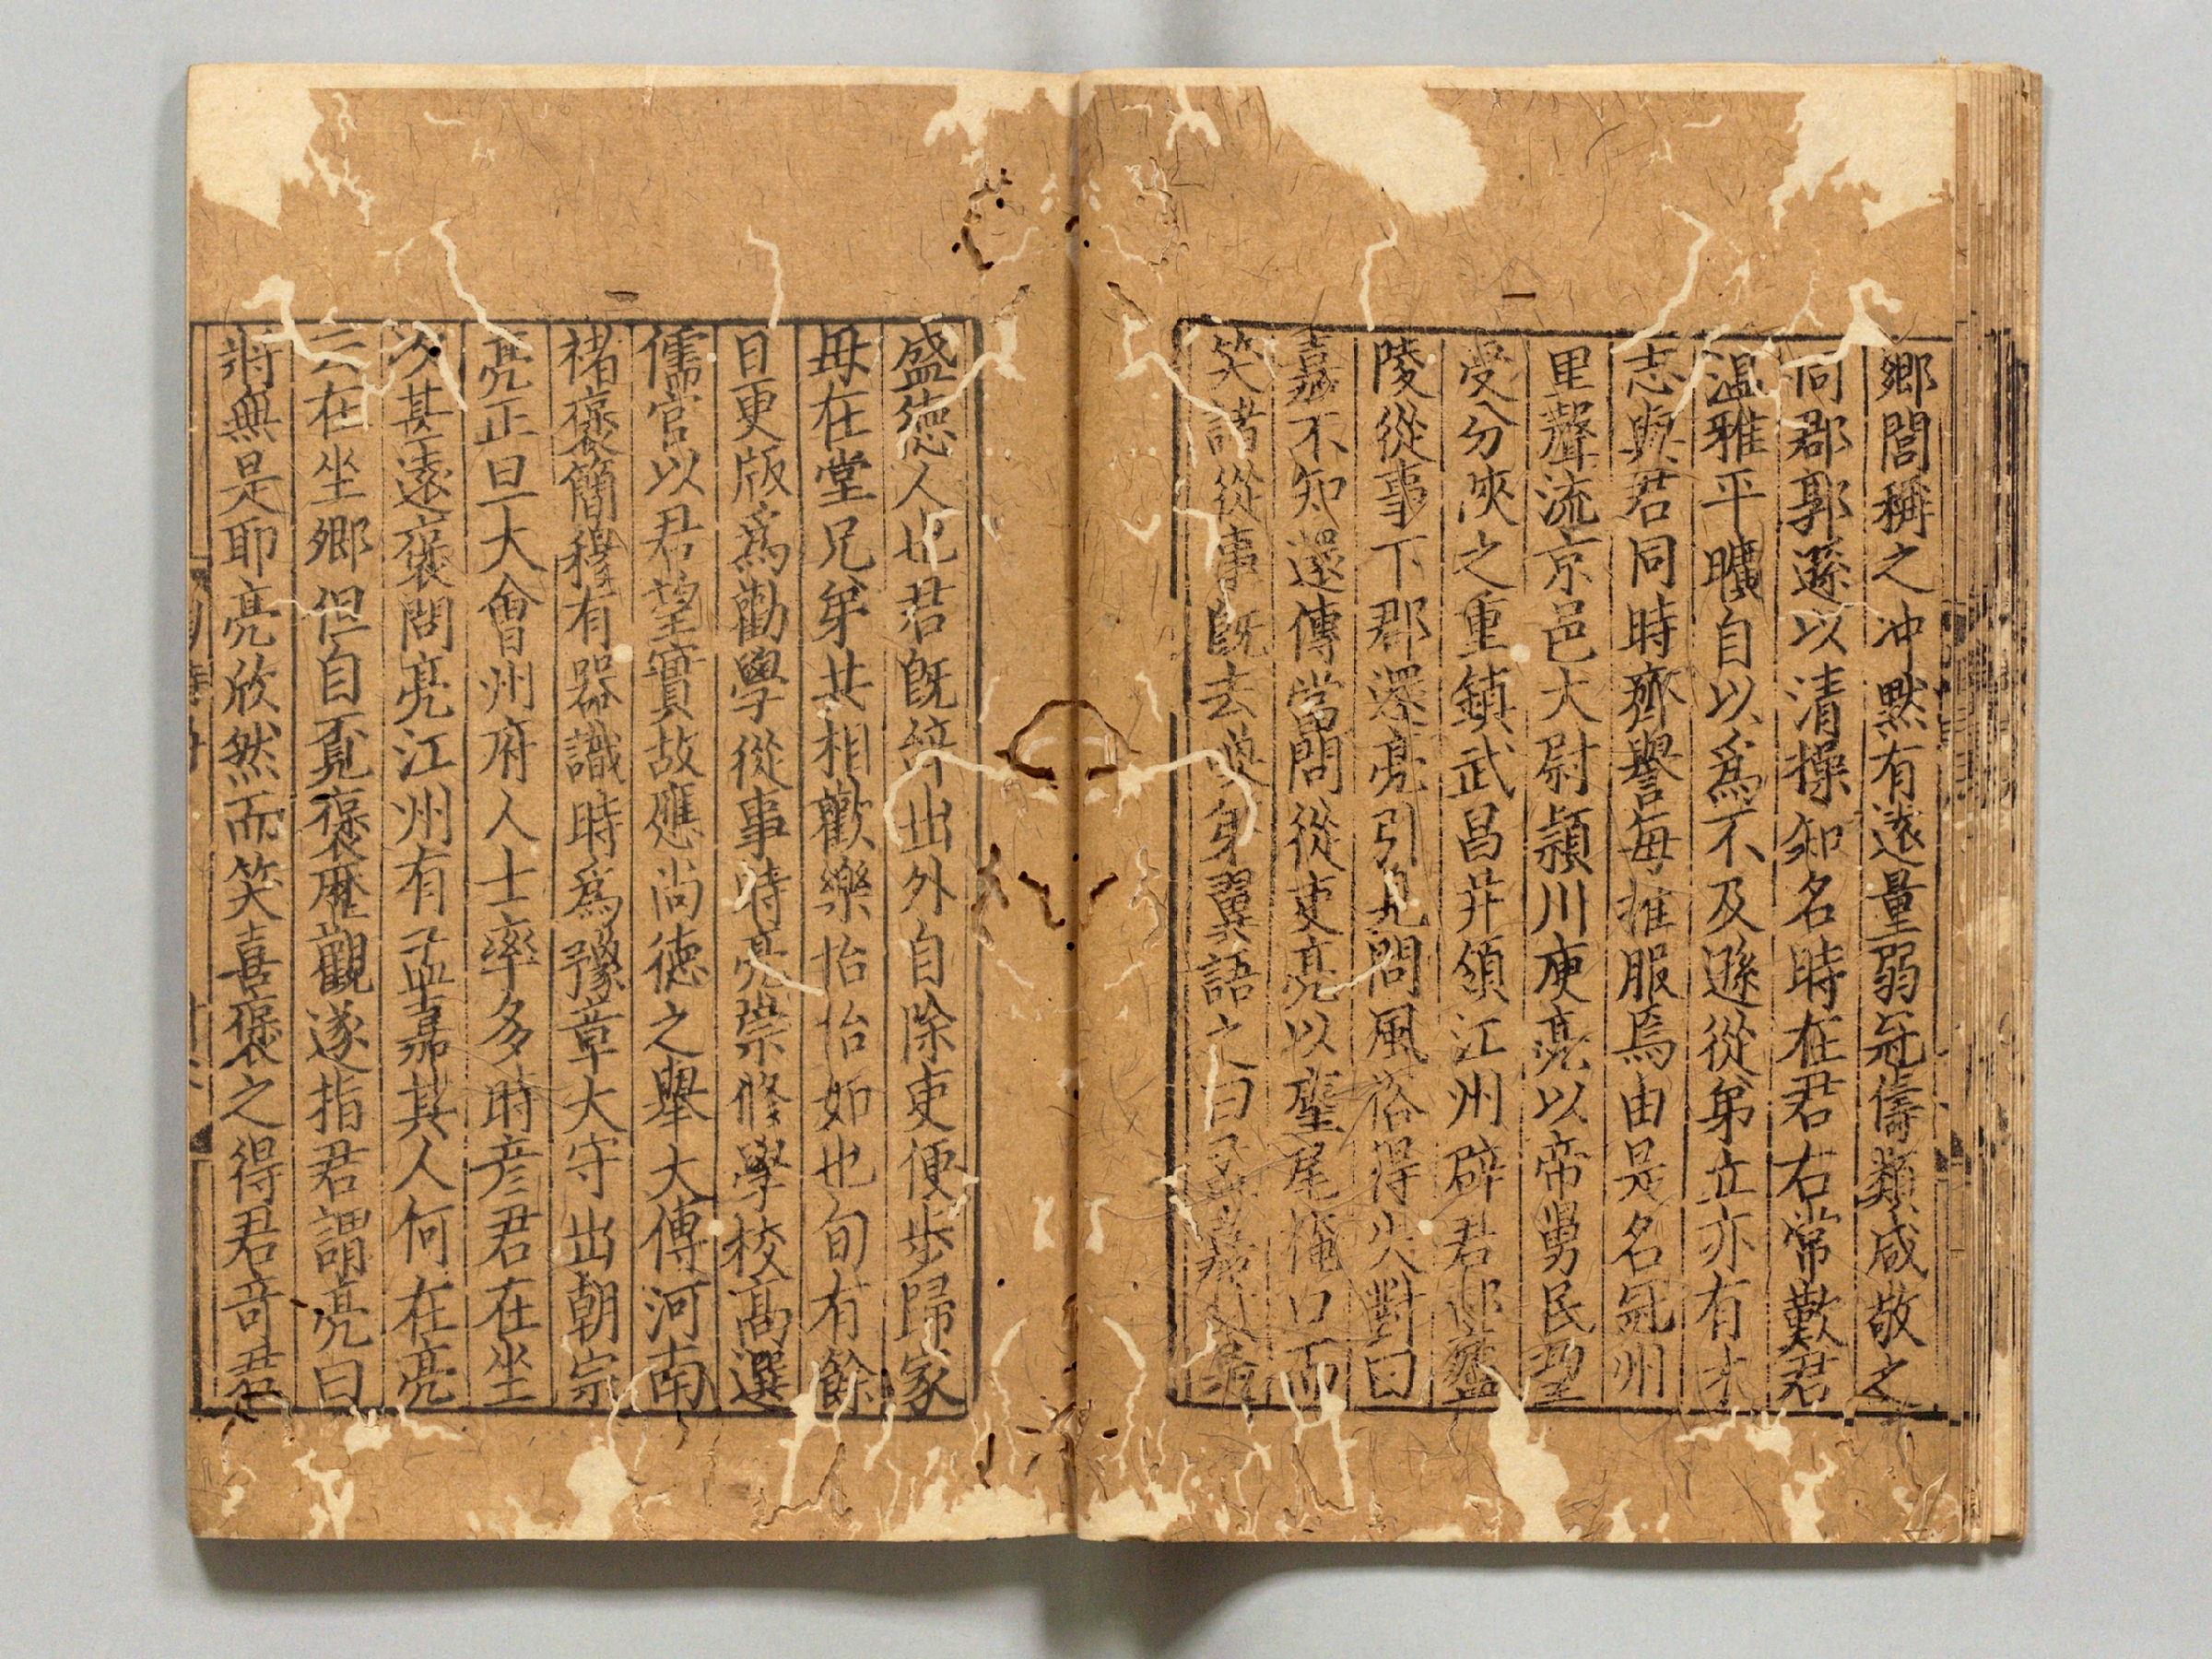 鄉閭稱之冲默有遠量弱冠儔類咸敬之
同郡郭遜以清操知名時在君右常歎君
温雅平曠自以爲不及遜從弟立亦有才
志與君同時齊譽每推服焉由是名冠州
里聲流京邑大尉潁川庾亮以帝舅民望
受分陝之重鎮武昌并領江州辟君部廬
陵從事下郡還亮引見問風俗得失對曰
嘉不知還傳當問從吏亮以麈尾掩口而
笑諸從事既去喚弟翼語之曰孟嘉故是
盛德人也君既辞出外自除吏便步歸家
母在堂兄弟共相歡樂怡怡如也旬有餘
日更版爲勸學從事時亮崇修學校高選
儒官以君望實故應尚德之舉大傅河南
禇裒簡穆有器識時爲豫章大守出朝宗
亮正旦大會州府人士率多時彦君在坐
次甚遠裒問亮江州有孟嘉其人何在亮
云在坐卿但自覓裒歷觀遂指君謂亮曰
將無是耶亮欣然而笑喜裒之得君奇君